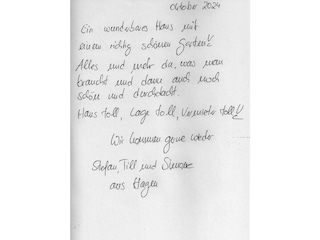 Oktober 2024
Ein wunderbares Haus mit
einem richtig schönen Garten!!
Alles und mehr da, was man
braucht und dann auch noch
schön und durchdacht.
Haus toll, Lage toll, Vermieter toll!!
Wir kommen gerne wieder
Stefan, Till und
aus Hagen